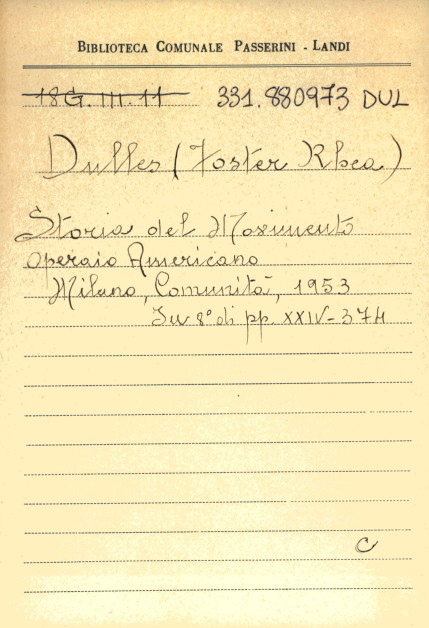 BIBLIOTECA COMUNALE PASSERINI - LANDI
18G.III.11 331.880973 DUL
Dulles (Foster Rhea)
Storia del Movimento
operaio Americano
Milano, Comunità, 1953
In 8° di pp. XXIV-374
C